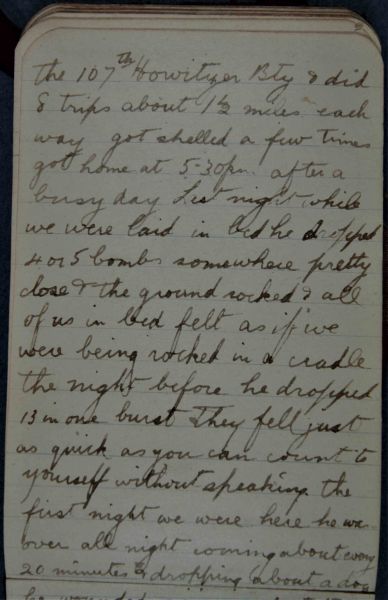 the 107th Howitzer Bty & did
8 trips about 1½ miles each
way got shelled a few times
got home at 5-30pm after a
busy day Last night while
we were laid in bed he dropped
4 or 5 bombs somewhere pretty
close & the ground rocked & all
of us in bed felt as if we
were being rocked in a cradle
the night before he dropped
13 in one burst They fell just
as quick as you can count to
yourself without speaking. the
first night we were here he was
over all night coming about every
20 minutes & dropping about a doz
he